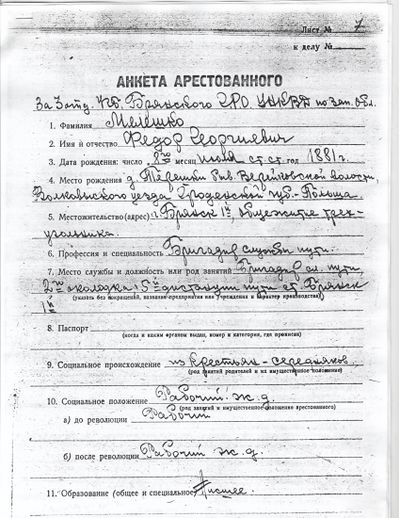 Лист № 7
к делу №
АНКЕТА АРЕСТОВАННОГО
За 3 отд. УГБ. Брянского ГРО. УНКВД по зап. обл.
1. Фамилия Мелешко
2. Имя и отчество Федор Георгиевич
3. Дата рождения: число 8го месяц июня ст. ст. год 1881 г.
4. Место рождения д. Терешки Верейковской волости,
Волковысского уезда Гродненской губ. - Польша.
5. Местожительство (адрес) г. Брянск 1й, общежитие трех-
угольника.
6. Профессия и специальность Бригадир службы пути.
7. Место службы и должность или род занятий Бригадир сл. пути,
2го околодка 5й дистанции пути ст. Брянск
(указать без сокращений, название предприятия или учреждения и характер производства)
1й
8. Паспорт
(когда и каким органом выдан, номер и категория, где прописан)
9. Социальное происхождение из крестьян-середняков
(род занятий родителей и их имущественное положение)
10. Социальное положение Рабочий ж. д.
(род занятий и имущественное положение арестованного)
а) до революции Рабочий
б) после революции Рабочий ж. д.
11. Образование (общее и специальное) Низшее.